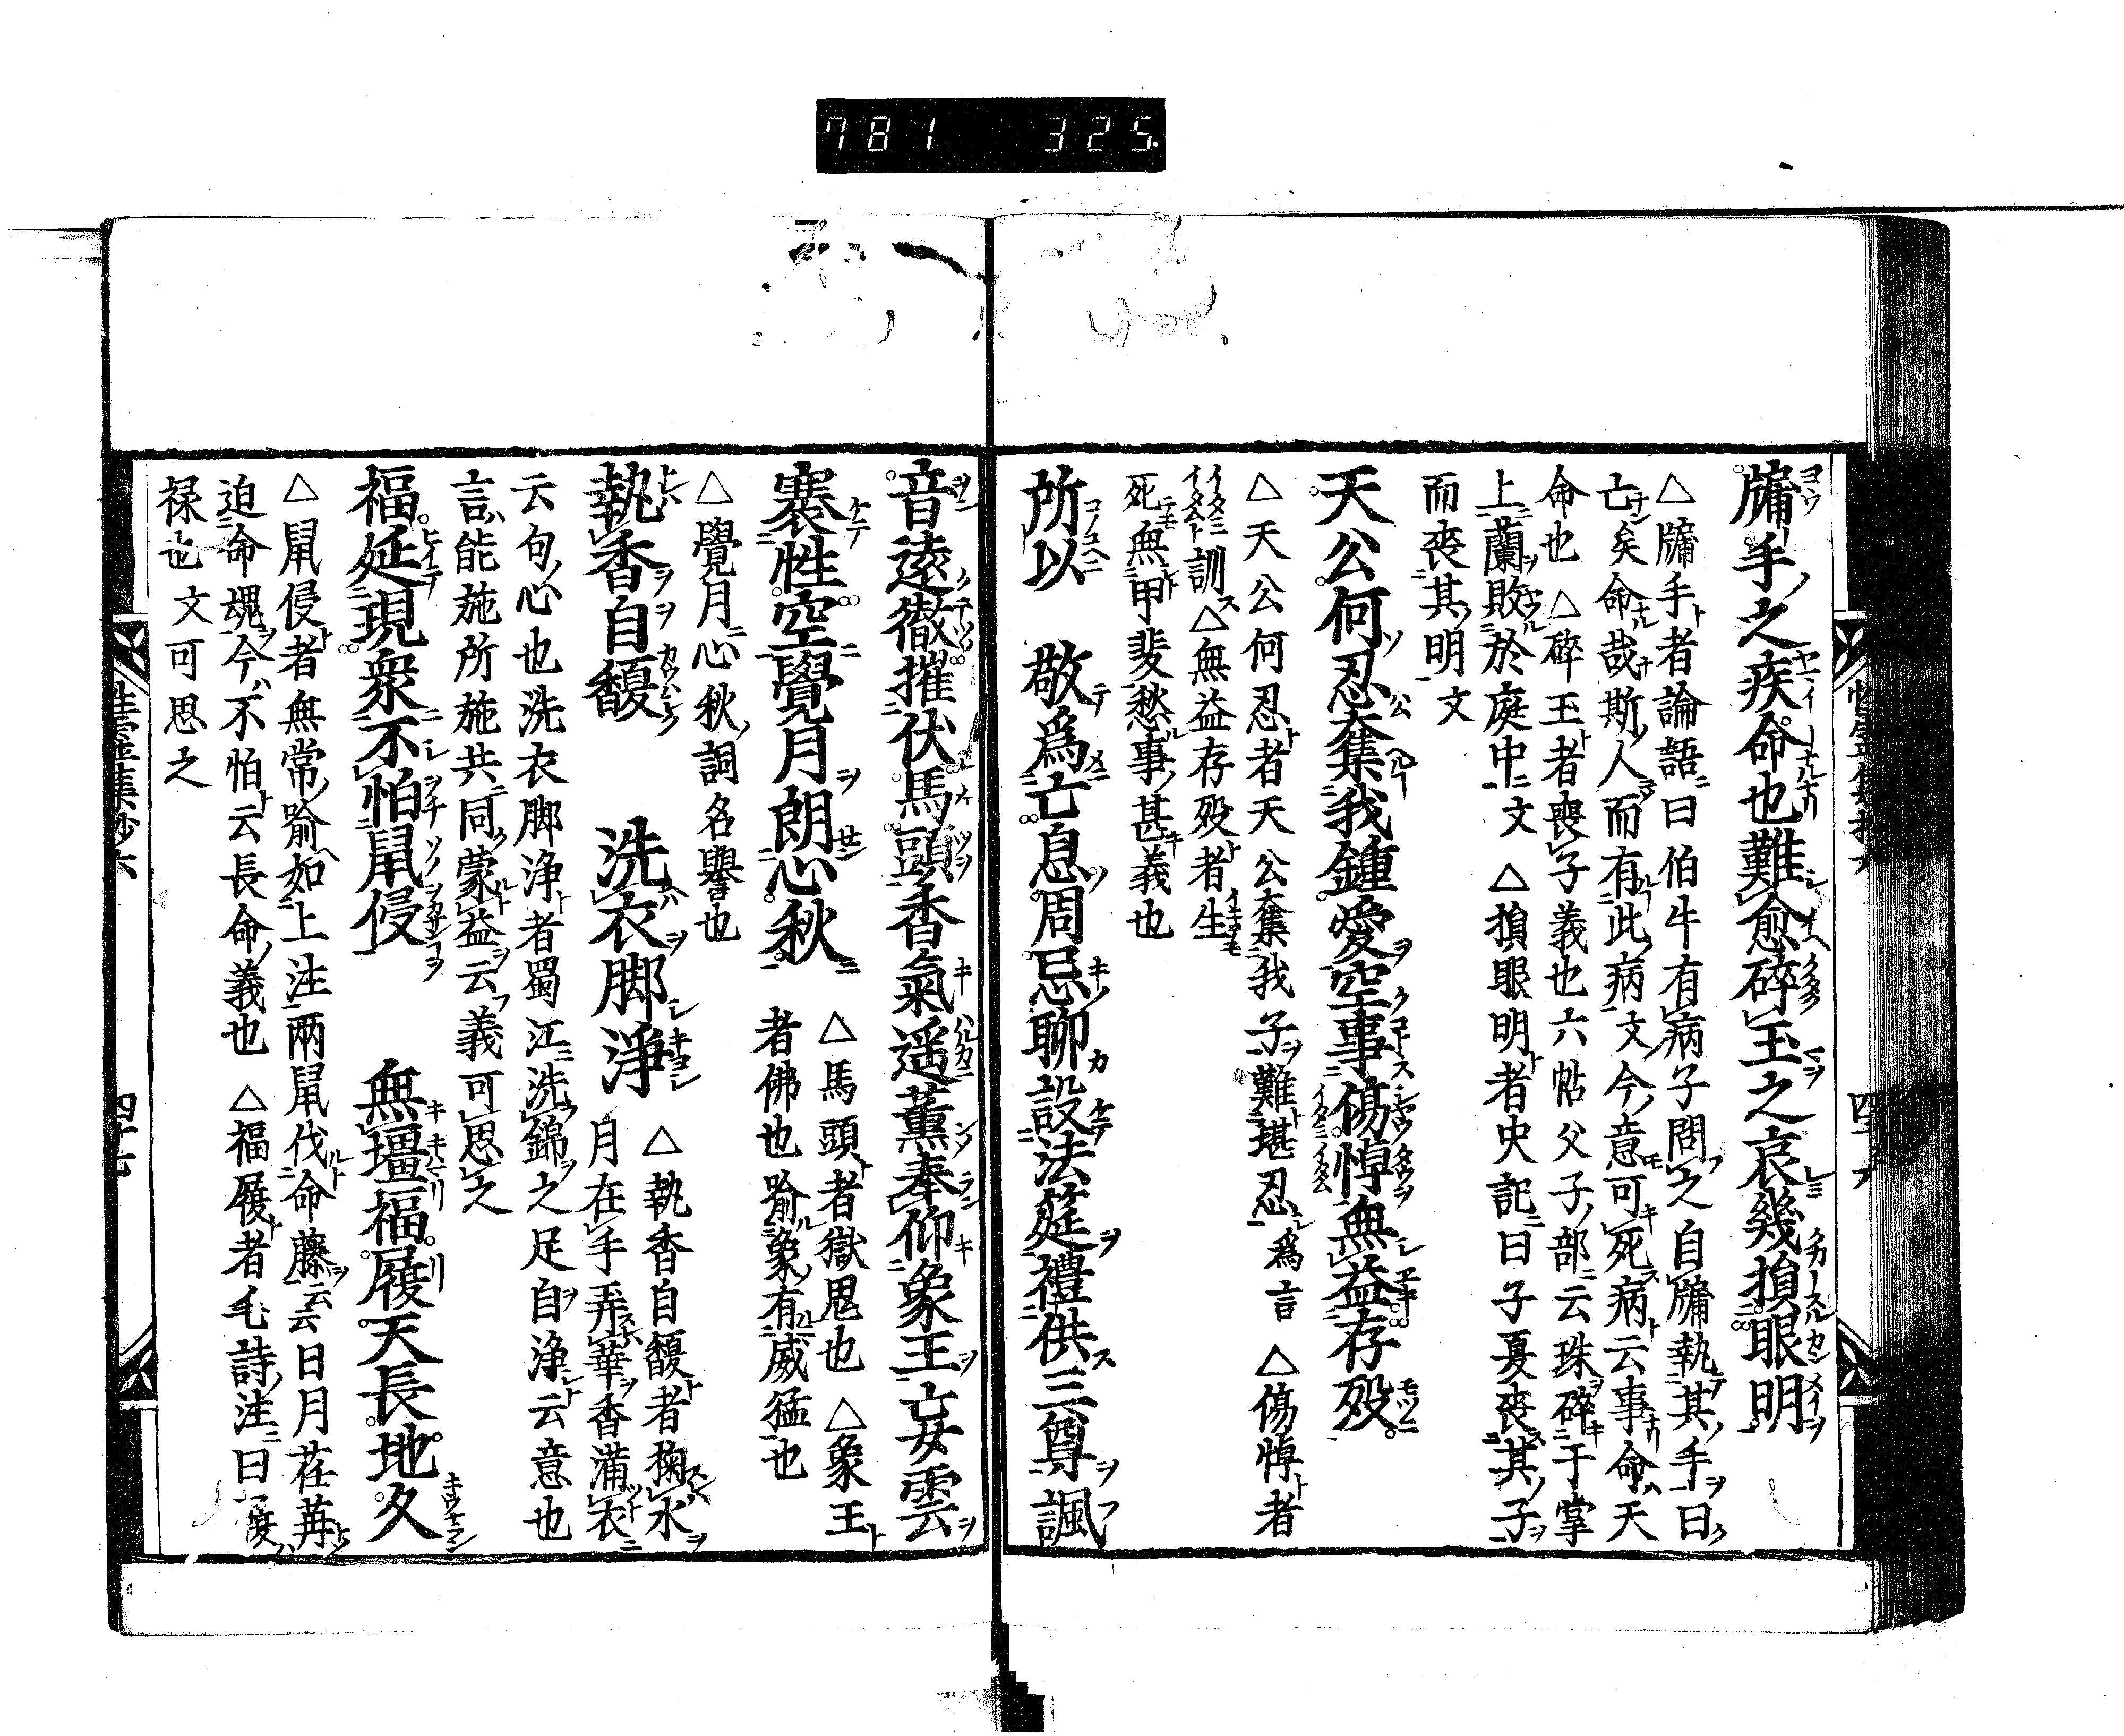 781 325
牖手之疾命也難愈碎玉之哀幾損眼明
△牖手者論語曰伯牛有病子問之自牖執其手曰
亡矣命哉斯人而有此病文今意可死病云事命天
命也△碎玉者喪子義也六帖父子部云珠碎于掌
上蘭敗於庭中文△損眼明者史記曰子夏喪其子
而喪其明文
天公何忍奪我鍾愛空事傷悼無益存歿
△天公何忍者天公奪我子難堪忍爲言△傷悼者
イタミイタムト訓ス△無益存歿者生
死無甲斐愁事甚義也
所以敬爲亡息周忌聊設法莚禮供三尊諷
音遠徹摧伏馬頭香氣遥薫奉仰象王亡女雲
褰性空覺月朗心秋△馬頭者獄鬼也△象王
者佛也喩象有威猛也
△覺月心秋詞名譽也
執香自馥洗衣脚淨△執香自馥者掬水
月在手弄華香滿衣
云句心也洗衣脚淨者蜀江洗錦之足自淨云意也
言能施所施共同蒙益云義可思之
福延現衆不怕鼠侵無壃福履天長地久
△鼠侵者無常喩如上注兩鼠伐命藤云云日月荏苒
迫命魂今不怕云長命義也△福履者毛詩注曰履
禄也文可思之
四十七